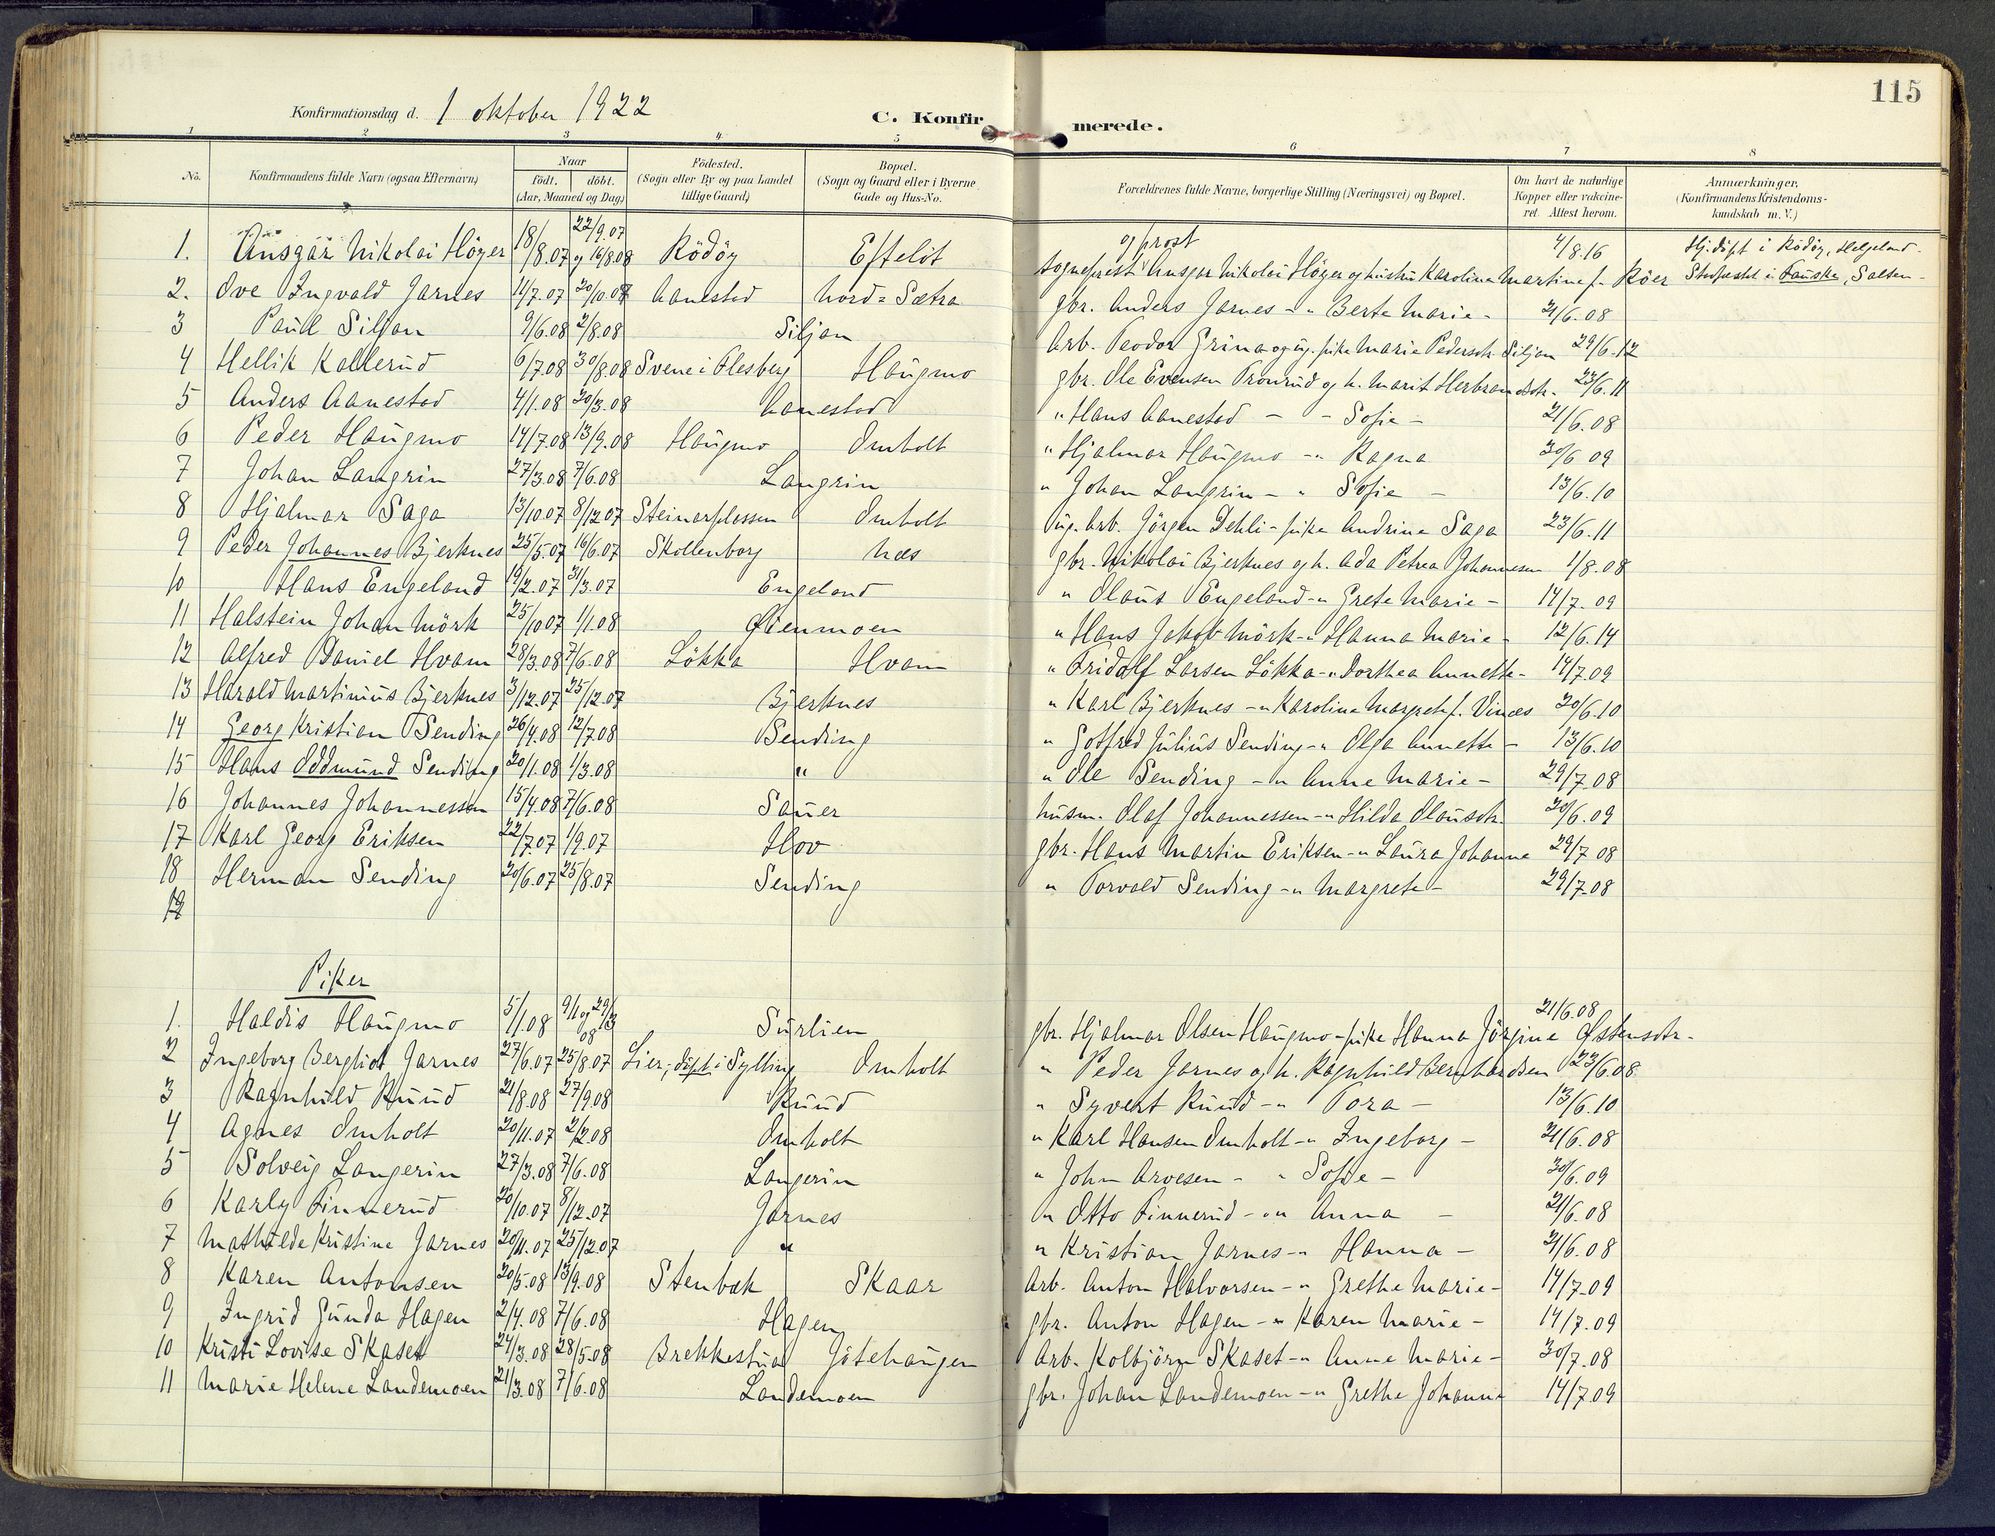 115
Konfirmationsdag d. 1 oktober 1922 C. Konfirmerede.
1 2 3 4 5 6 7 8
No. Konfirmandens fulde Navn (ogsaa Efternavn) Naar födt. döbt. (Aar, Maaned og Dag) Födested. (Sogn eller By og paa Landet tillige Gaard) Bopæl. (Sogn og Gaard eller i Byerne Gade og Hus-No. Forældrenes fulde Navne, borgerlige Stilling (Næringsvei) og Bopæl. Om havt de naturlige Kopper eller vakcineret. Attest herom. Anmærkninger. (Konfirmandens Kristendomskundskab m. V.)
1. Ansgar Nikolai Höyer 18/8.07 22/9.07 og 16/8.08 Rödöy Efteløt sogneprest og prost Ansgar Nikolai Höyer og hustru Karoline Martine f. Röer 4/8.16 Hj.döpt i Rödöy, Helgeland. Stadfæstet i Fauske, Salten
2. Ove Ingvald Jarnes 14/7.07 20/10.07 Aanestad Nord-Sætra gbr. Anders Jarnes - " Berte Marie - 21/6.08
3 Paul Siljan 9/6.08 2/8.08 Siljan Arb. Teodor Grina og ug. pike Marie Pedersdtr Siljan 29/6.12
4 Hellik Kallerud 6/7.08 30/8.08 Svene i Flesberg Haugmo gbr. Ole Evensen Tronrud og h. Marit Herbrandsdtr. 23/6.11
5 Anders Aanestad 4/1.08 20/3.08 Aanestad " Hans Aanestad - - Sofie - 21/6.08
6 Peder Haugmo 14/7.08 13/9.08 Haugmo Omholt " Hjalmar Haugmo - " Ragna 30/6 09
7 Johan Langrin 27/3.08 7/6.08 Langrin " Johan Langrin - " Sofie - 13/6.10
8 Hjalmar Saga 13/10.07 8/12.07 Steinarplassen Omholt ug. arb. Jörgen Dehli - pike Andrine Saga 23/6.11
9 Peder Johannes Bjerknes 25/5.07 16/6.07 Skollenborg Næs gbr. Nikolai Bjerknes og h. Ada Petrea Johannesen 1/8.08
10 Hans Engeland 19/2.07 31/3.07 Engeland " Olaus Engeland - " Grete Marie - 14/7.09
11 Halstein Johan Mörk 25/10.07 1/1.08 Øienmoen " Hans Jakob Mörk - " Hanna Marie - 12/6.14
12 Alfred Daniel Hvam 28/3.08 7/6.08 Lökka Hvam " Fridolf Larsen Lökka - " Dorthea Annette - 14/7.09
13 Harald Martinius Bjerknes 3/12.07 25/12.07 Bjerknes " Karl Bjerknes - " Karoline Margrete f. Vinæs 20/6.10
14 Georg Kristian Sending 26/4.08 12/7.08 Sending " Gotfred Julius Sending - " Olga Annette - 13/6.10
15 Hans Oddmund Sending 20/1.08 1/3.08 " " Ole Sending - " Anne Marie - 29/7.08
16 Johannes Johannessen 15/4.08 7/6.08 Sauer husm. Olaf Johannessen - " Hilda Olausdtr. 20/6.09
17 Karl Georg Eriksen 22/7.07 1/9.07 Hov gbr. Hans Martin Eriksen - " Laura Johanne 29/7 08
18 Herman Sending 20/6.07 25/8.07 Sending " Torvald Sending - " Margrete - 29/7.08
19
Piker
1. Haldis Haugmo 5/1.08 9/1 og 29/3 08 Surlien gbr. Hjalmar Olsen Haugmo - pike Hanna Jörgine Østensdtr. 21/6.08
2 Ingeborg Bergliot Jarnes 27/6.07 25/8.07 Lier, döpt i Sylling Omholt " Peder Jarnes og h. Ragnhild Bernhardsen 23/6.08
3 Ragnhild Ruud 21/8.08 27/9.08 Ruud " Syvert Ruud - " Tora - 13/6.10
4 Agnes Omholt 20/11.07 2/2.08 Omholt " Karl Hansen Omholt - " Ingeborg - 21/6.08
5 Solveig Langerin 27/3.08 7/6.08 Langerin " John Arvesen - " Sofie - 30/6.09
6 Karly Finnerud 20/10.07 8/12.07 Jarnes " Otto Finnerud - " Anna - 21/6.08
7 Mathilde Kristine Jarnes 20/11.07 25/12.07 " " Kristian Jarnes - " Hanna - 21/6.08
8 Karen Antonsen 20/5.08 13/9.08 Stenbæk Skaar Arb. Anton Halvorsen - " Grethe Marie - 14/7.09
9 Ingrid Gunda Hagen 2/4.08 7/6.08 Hagen gbr. Anton Hagen - " Karen Marie - 14/7.09
10 Kristi Lovise Skaset 24/3.08 28/5.08 Brekkestua Götehaugen Arb. Kolbjörn Skaset - " Anne Marie - 30/7.08
11 Marie Helene Landemoen 21/3.08 7/6.08 Landemoen gbr. Johan Landemoen - " Grethe Johanne 14/7.09